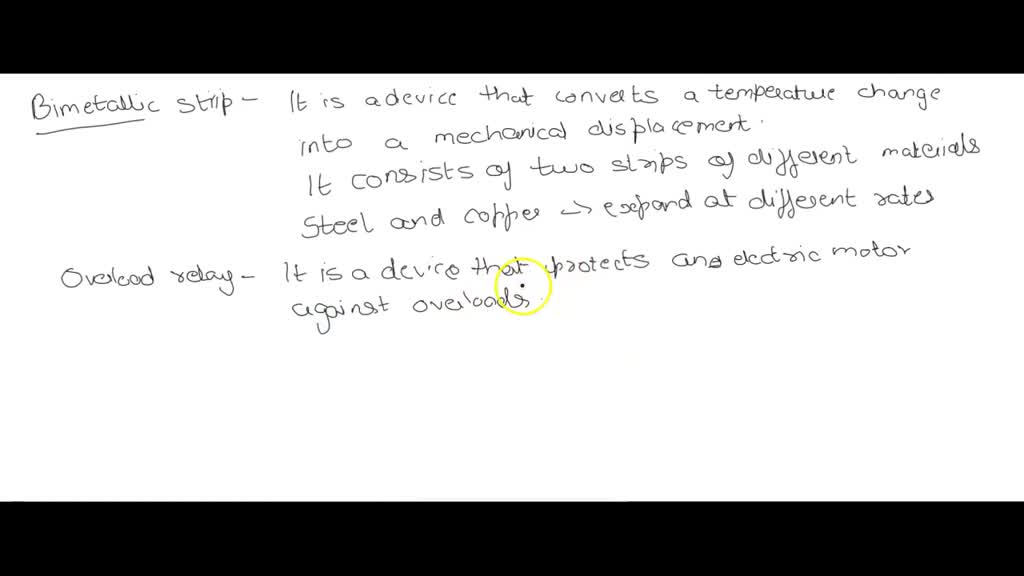 Bimetallic strip - It is a device that converts a temperature change
into a mechanical displacement.
It consists of two strips of different materials
Steel and copper -> expand at different rates
Overload relay - It is a device that protects an electric motor
against overloads.